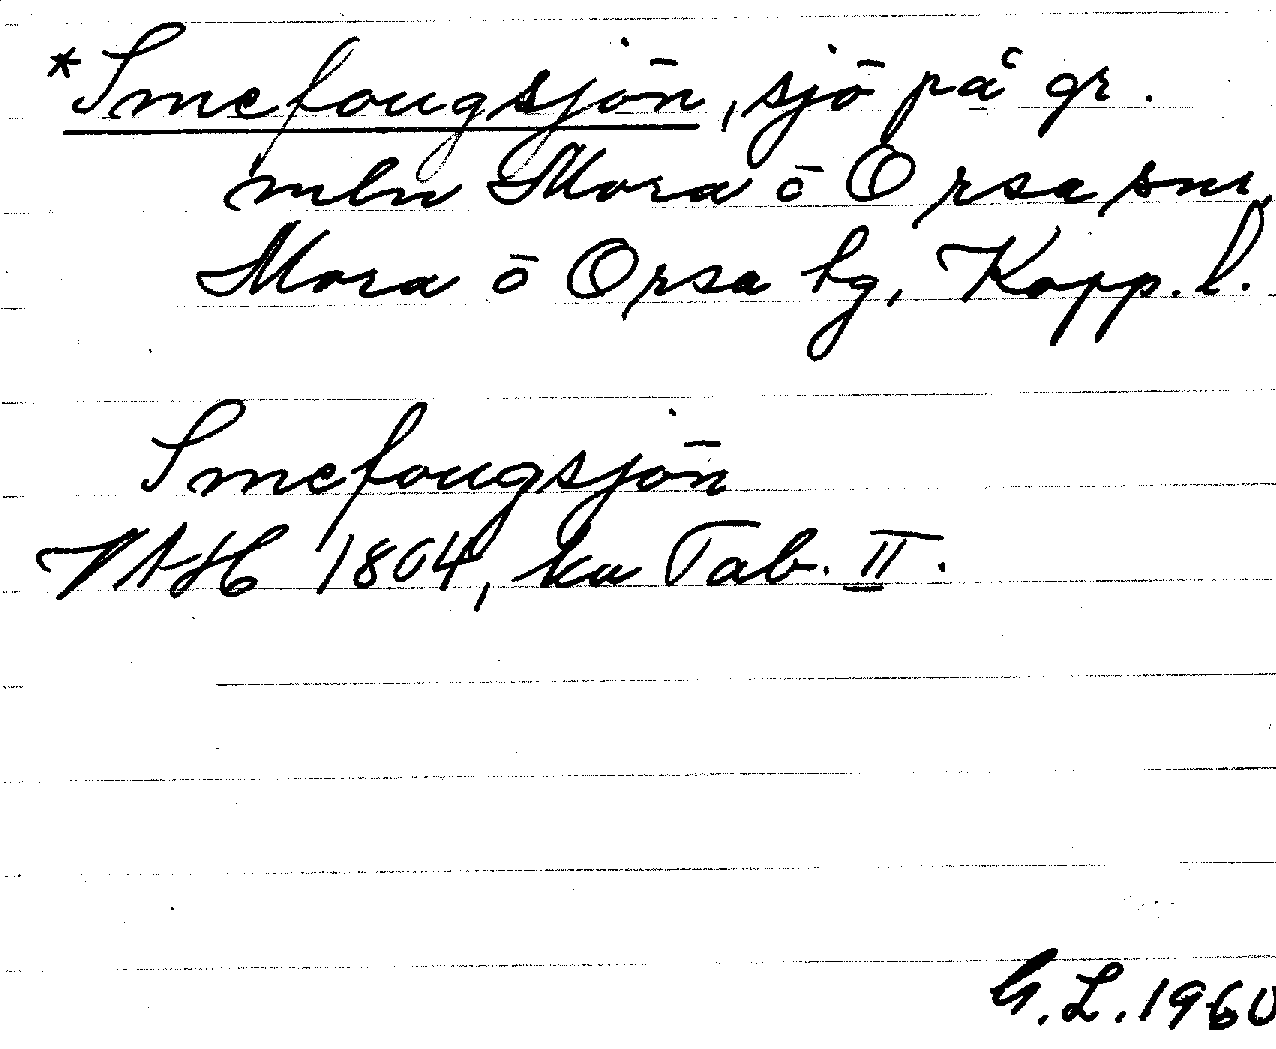 *Smefougsjön, sjö på gr.
mln Mora o Orsa snr,
Mora o Orsa hg, Kopp. l.
Smefougsjön
VAH 1804, ka Tab. II.
G.L. 1960